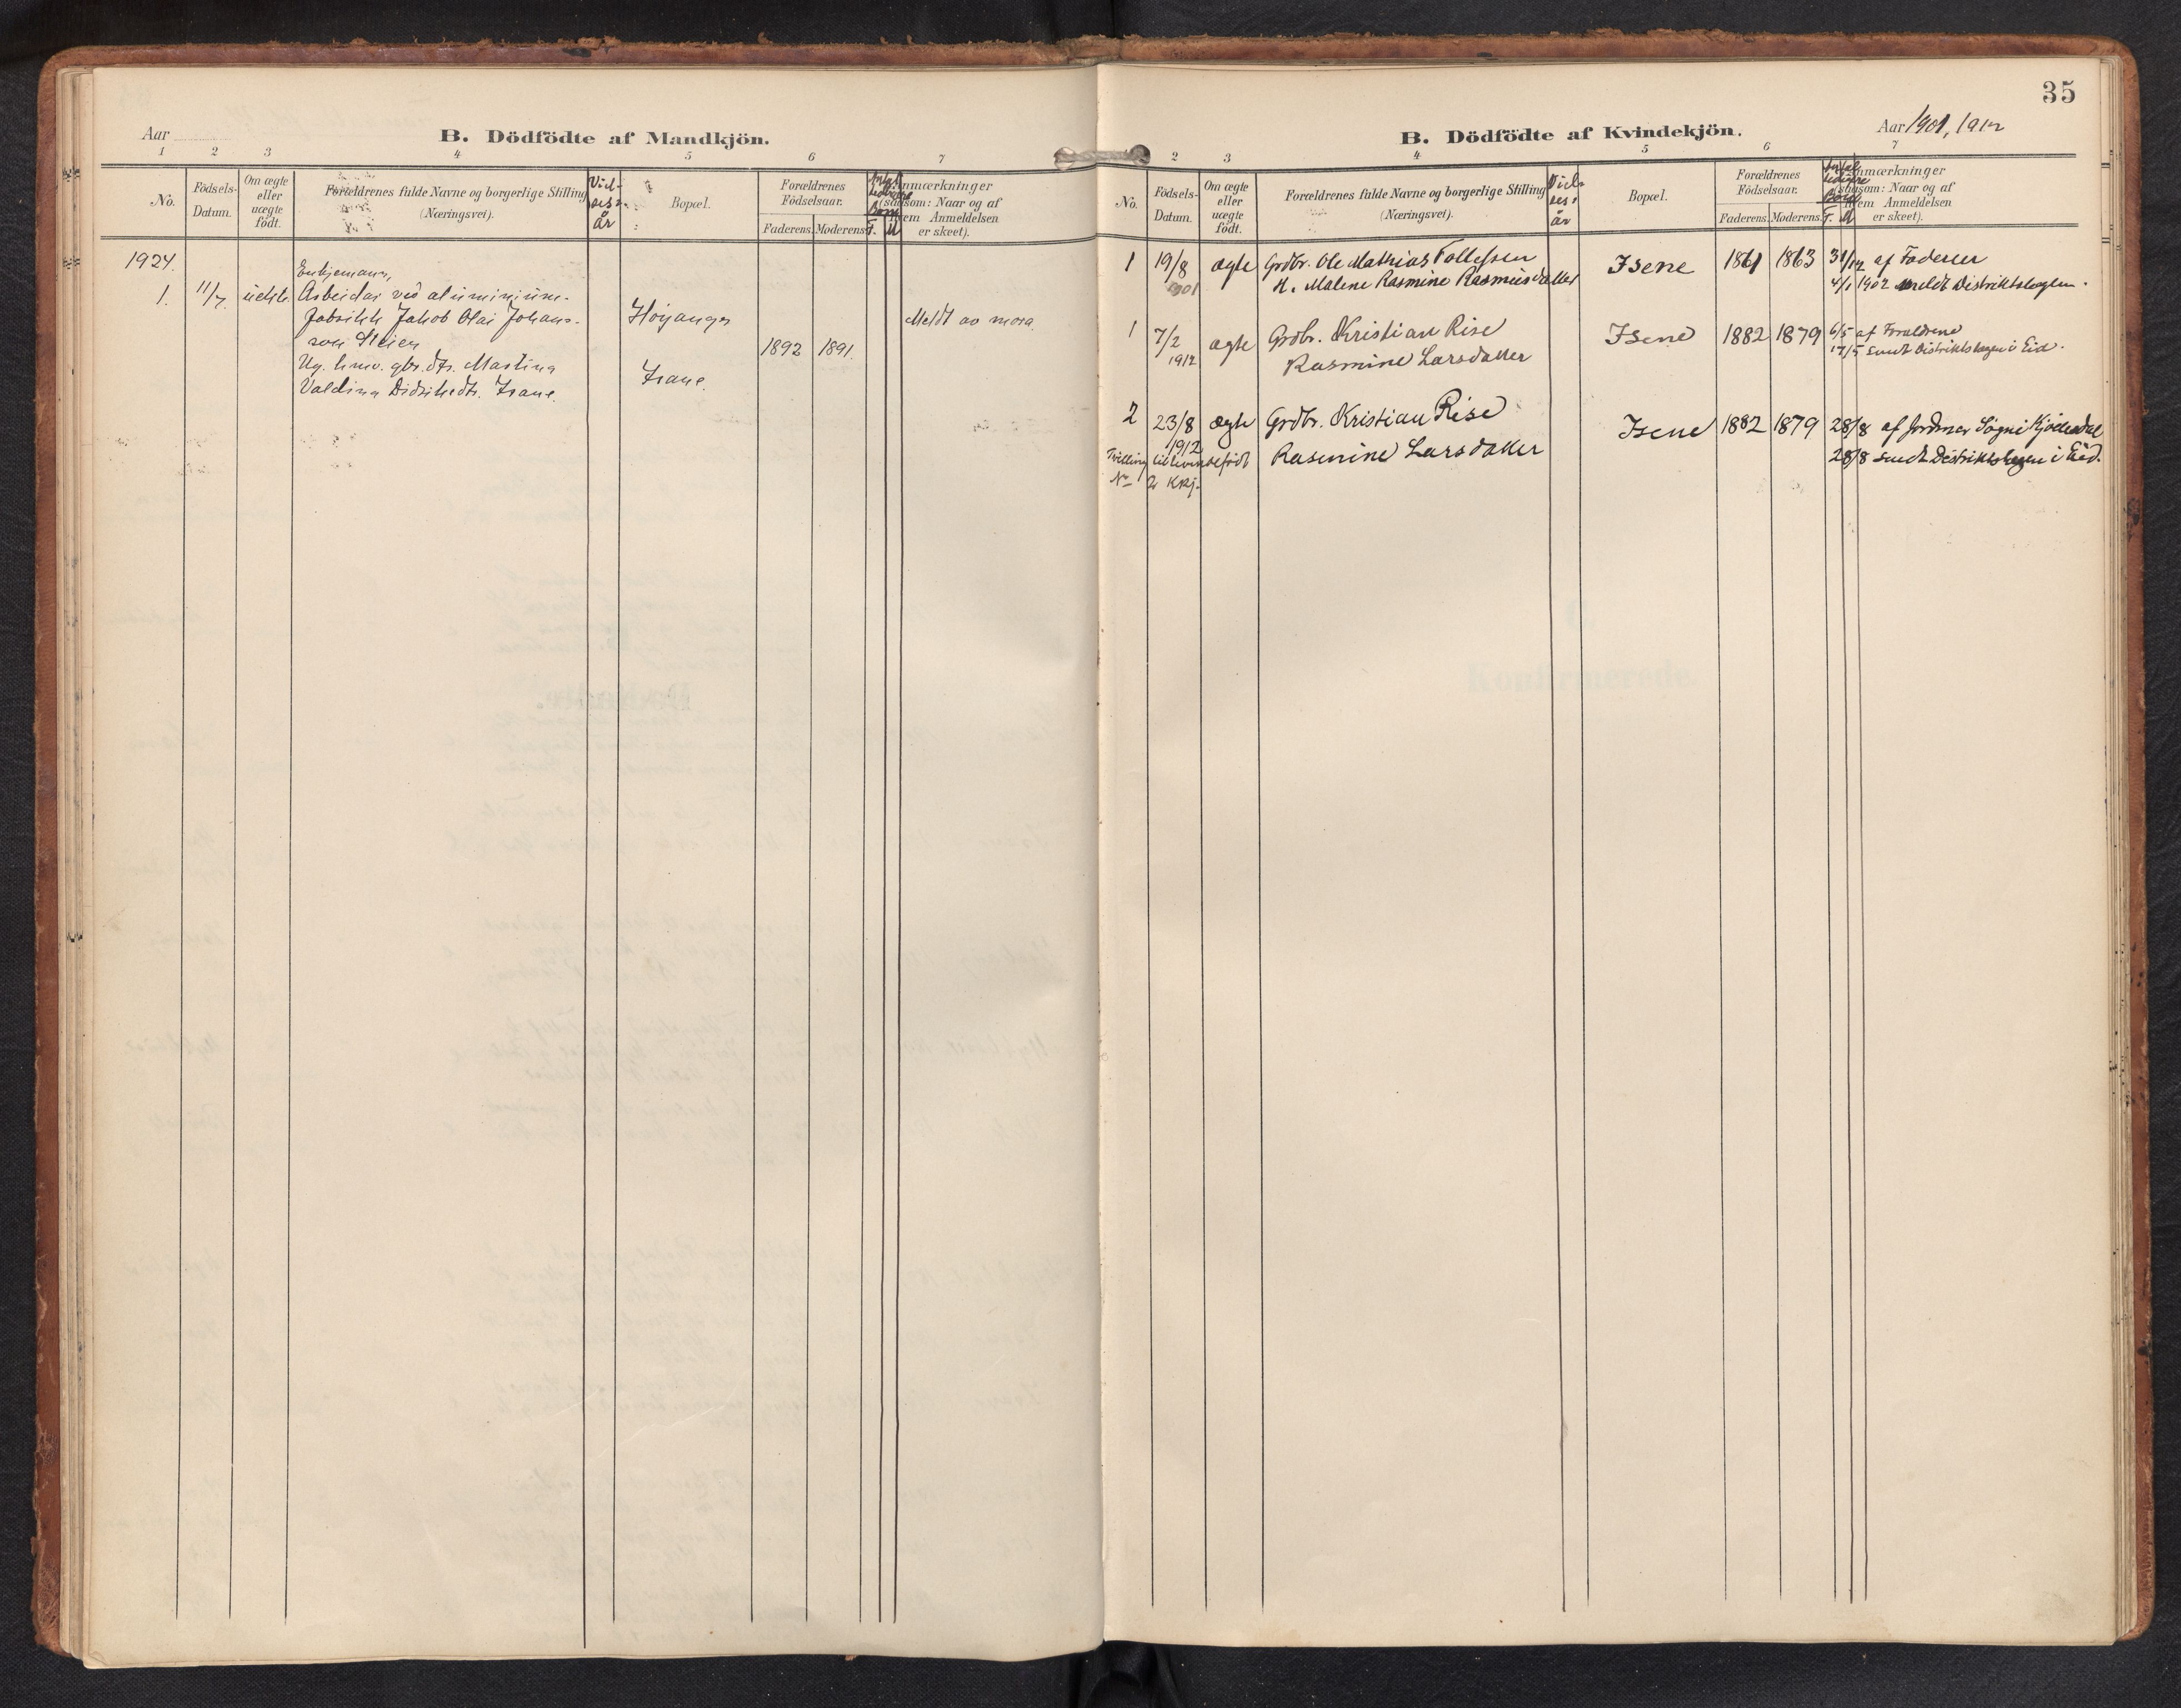 Aar
B. Dödfödte af Mandkjön.
1 2 3 4 5 6 7
No.
Födsels-
Datum.
Om ægte
eller
uægte
födt.
Forældrenes fulde Navne og borgerlige Stilling
(Næringsvei).
Viel-
ses-
år
Bopæl.
Forældrenes
Födselsaar.
Faderens. Moderens.
F. M
Anmærkninger
(saasom: Naar og af
hvem Anmeldelsen
er skeet).
1924.
1. 11/7 uekte.
Enkjemann,
Arbeidar ved aluminium-
fabrikk Jakob Olai Johans-
son Steien
Ug. hmv. gbr.dtr. Martina
Valdina Didriksdtr. Isane.
Høyanger
Isane.
1892 1891.
Meldt av mora.
35
B. Dödfödte af Kvindekjön.
Aar 1901, 1912
2 3 4 5 6 7
No.
Födsels-
Datum.
Om ægte
eller
uægte
födt.
Forældrenes fulde Navne og borgerlige Stilling
(Næringsvei).
Viel-
ses-
år
Bopæl.
Forældrenes
Födselsaar.
Faderens. Moderens.
F. M
Anmærkninger
(saasom: Naar og af
hvem Anmeldelsen
er skeet).
1 19/8 1901 ægte Grdbr. Ole Mathias Tollefsen
H. Malene Rasmine Rasmusdatter
Isene 1861 1863 31/12 af Faderen
4/1 1902 meldt Distriktslægen.
1 7/2 1912 ægte Grdbr. Kristian Rise
Rasmine Larsdatter
Isene 1882 1879 6/5 af Forældrene
17/5 sendt Distriktslægen i Eid.
2 23/8 1912 ægte Grdbr. Kristian Rise
Rasmine Larsdatter
Tvilling til levendefödt
No 2 Kkj.
Isene 1882 1879 28/8 af Jordmor Sogni Kjödesdal
28/8 sendt Distriktslægen i Eid.